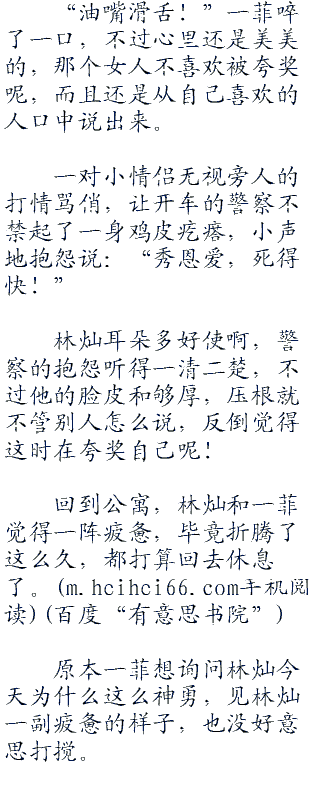 “油嘴滑舌！”一菲啐
了一口，不过心里还是美美
的，那个女人不喜欢被夸奖
呢，而且还是从自己喜欢的
人口中说出来。
一对小情侣无视旁人的
打情骂俏，让开车的警察不
禁起了一身鸡皮疙瘩，小声
地抱怨说：“秀恩爱，死得
快！”
林灿耳朵多好使啊，警
察的抱怨听得一清二楚，不
过他的脸皮和够厚，压根就
不管别人怎么说，反倒觉得
这时在夸奖自己呢！
回到公寓，林灿和一菲
觉得一阵疲惫，毕竟折腾了
这么久，都打算回去休息
了。(m.hcihci66.com手机阅
读)(百度“有意思书院”)
原本一菲想询问林灿今
天为什么这么神勇，见林灿
一副疲惫的样子，也没好意
思打搅。